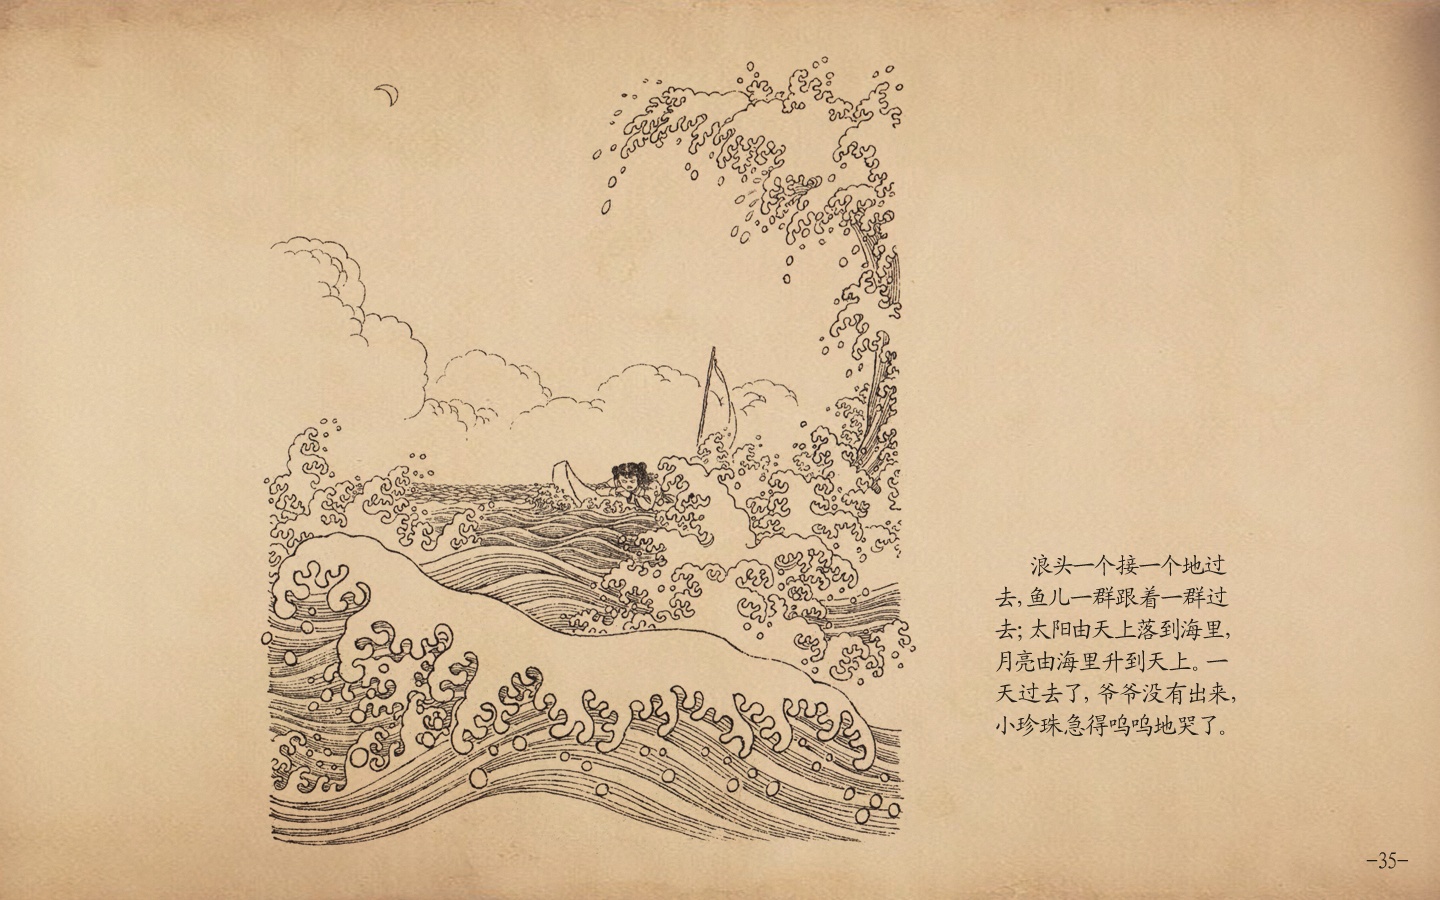 浪头一个接一个地过
去,鱼儿一群跟着一群过
去;太阳由天上落到海里,
月亮由海里升到天上。一
天过去了,爷爷没有出来,
小珍珠急得呜呜地哭了。
-35-